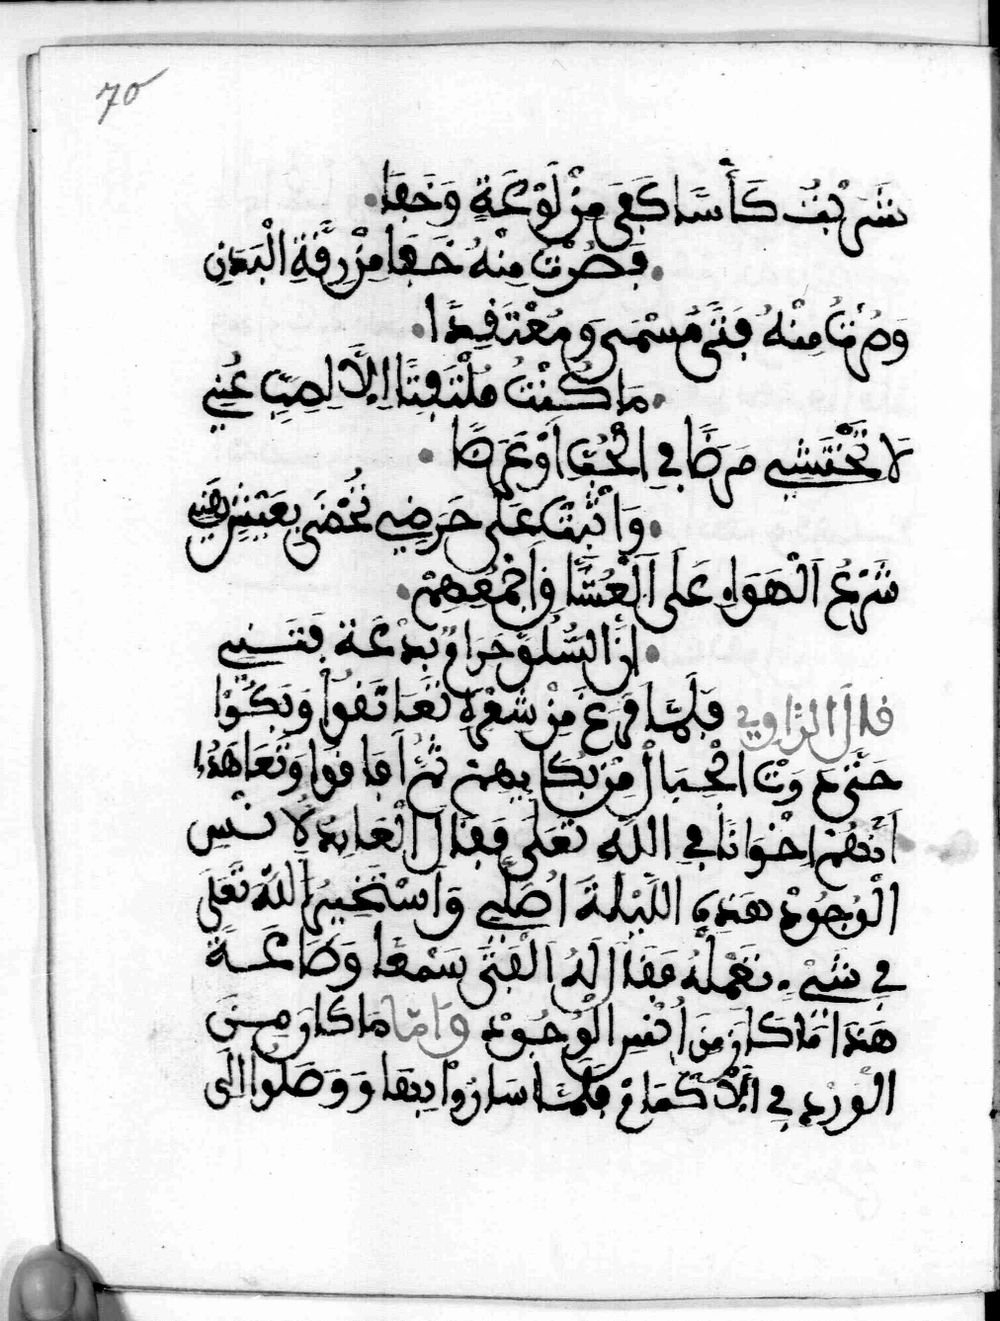 70
شَرِبْتُ كَأْسًا كَفَى مِنْ لَوْعَةٍ وَجَفَا
فَصُرْتُ مِنْهُ خَفَا مِنْ رِقَّةِ الْبَدَنِ
وَصُرْتُ مِنْهُ فَتًى مُسْمَى وَمُعْتَقِدًا
مَا كُنْتُ مُلْتَفِتًا إِلَّا لِصَبٍّ عُنِي
لَا تَخْتَشِي مَرَضًا فِي الْحُبِّ أَوْ عَرَضًا
وَاثْبُتْ عَلَى حَرَضِي تُحْضَى بِعَيْشٍ هَنِي
شَرْعُ الْهَوَاءِ عَلَى الْعُشَّاقِ أَجْمَعِهِمْ
إِنَّ السُّلُوَّ حَرَامٌ بِدْعَة
قَالَ الرَّاوِي فَلَمَّا فَرَغَ مِنْ شِعْرِهِ تَعَانَقُوا وَبَكَوْا
حَتَّى الْجِبَالُ مِنْ بُكَايِهِمْ ثُمَّ أَفَاقُوا وَتَعَاهَدُوا
أَنَّهُمْ إِخْوَانًا فِي اللَّهِ تَعَلَى فَقَالَ الْعَابِدُ لِأُنْسِ
الْوُجُودْ هَذِهِ اللَّيْلَةَ أُصَلِّي وَاسْتَخِيرُ اللَّهَ تَعَلَى
فِي شَيْءٍ تَعْمَلُهُ فَقَالَ لَهُ الْفَتَى سَمْعًا وَطَاعَة
هَذَا مَا كَانَ مِنَ أُنْسِ الْوُجُودْ وَأَمَّا مَا كَانَ مِنَ
الْوَرْدِ فِي الْأَكْمَامْ فَلَمَّا سَارُوا بِهَا وَوَصَلُوا إِلَى